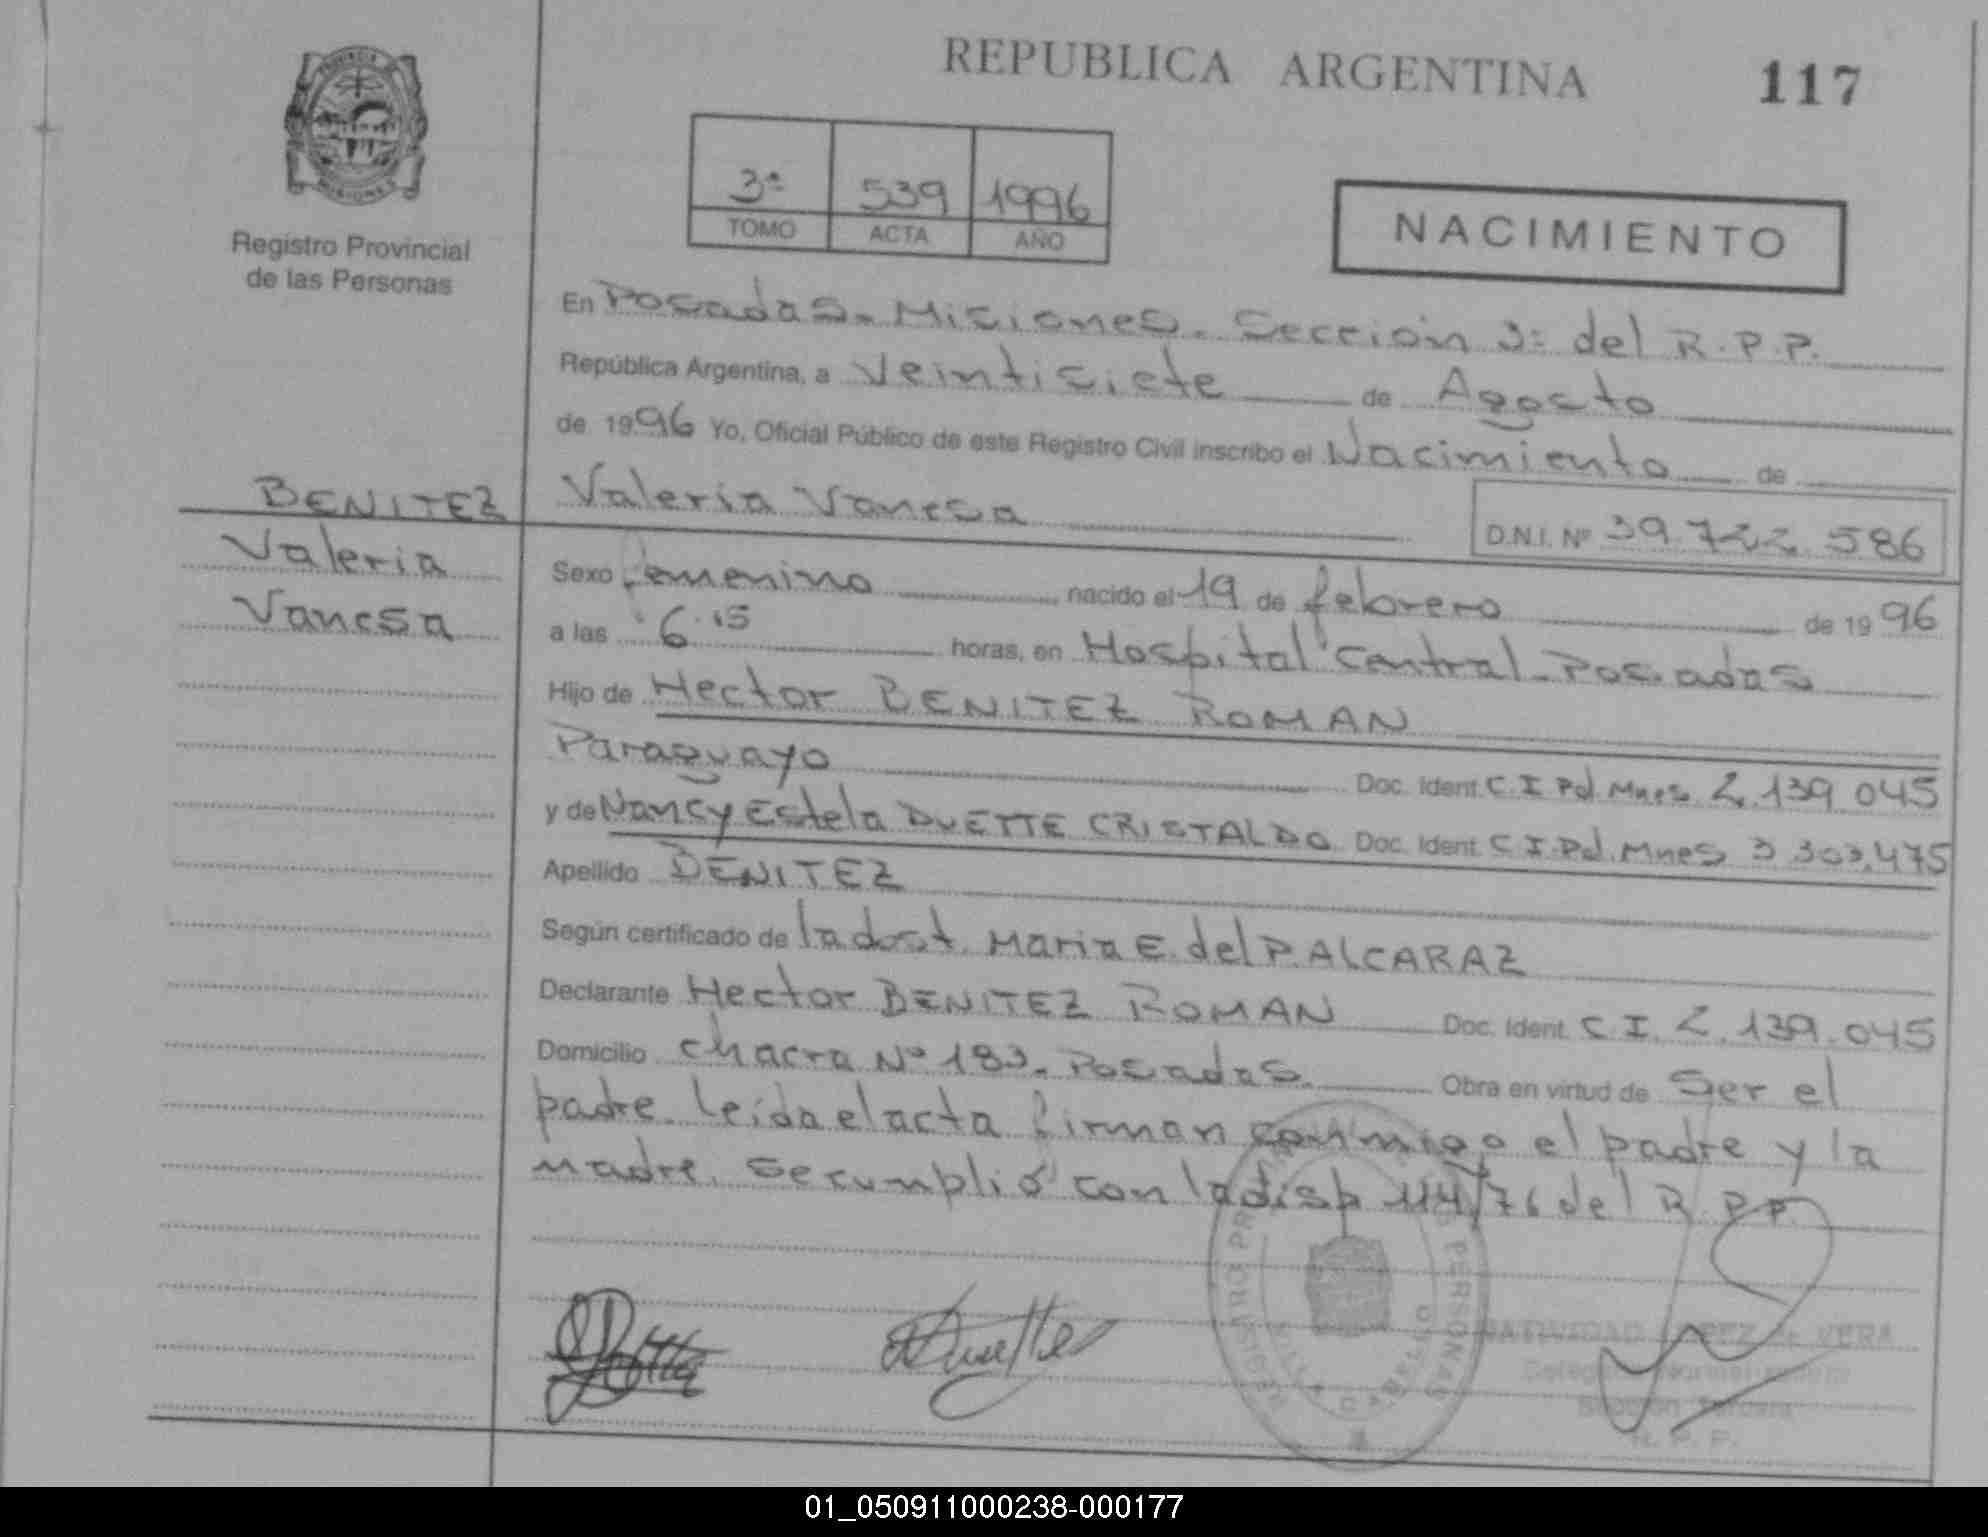 REPUBLICA ARGENTINA
117
PROVINCIA
MISIONES
Registro Provincial
de las Personas
3ª 539 1996
TOMO ACTA AÑO
NACIMIENTO
En Posadas - Misiones - Sección 3ª del R.P.P.
República Argentina, a Veintisiete de Agosto
de 1996 Yo, Oficial Público de este Registro Civil inscribo el Nacimiento de
BENITEZ
Valeria
Vanesa
Valeria Vanesa
D.N.I. Nº 39.722.586
Sexo femenino nacido el 19 de febrero de 1996
a las 6.15 horas, en Hospital Central - Posadas
Hijo de Hector BENITEZ ROMAN
Paraguayo Doc. Ident. C.I Pol. Mnes 2.139.045
y de Nancy Estela DUETTE CRISTALDO Doc. Ident. C.I. Pol. Mnes 3.303.475
Apellido BENITEZ
Según certificado de la dost. Maria E. del P. ALCARAZ
Declarante Hector BENITEZ ROMAN Doc. Ident. C.I. 2.139.045
Domicilio Chacra Nº 183 - Posadas. Obra en virtud de ser el
padre. Leída el acta firman conmigo el padre y la
madre. Se cumplió con la disp 114/76 del R.P.P.
NATIVIDAD LOPEZ de VERA
Sección Tercera
R. P. P.
01_050911000238-000177